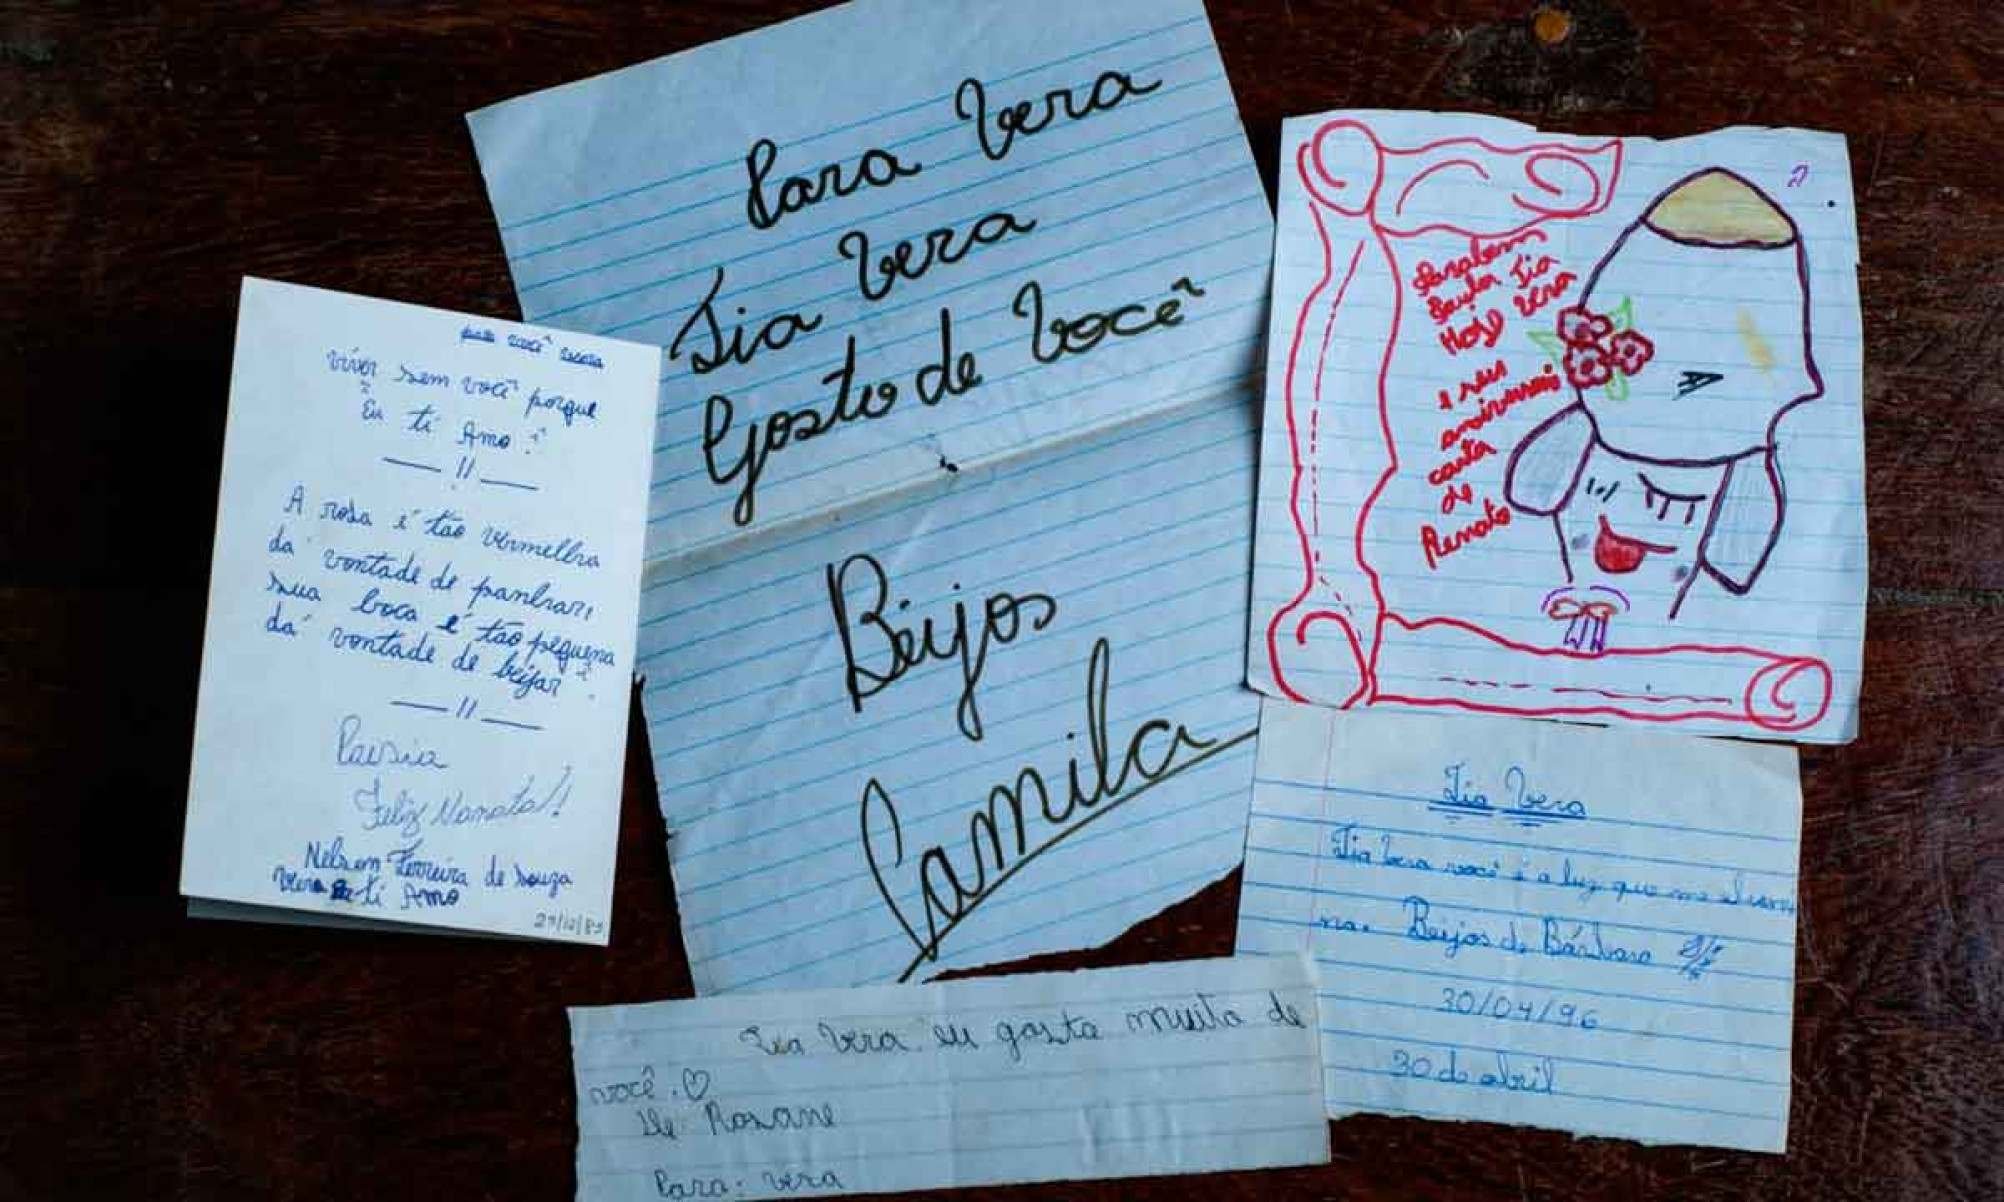 você
viver sem você porque
Eu ti Amo!
A rosa é tão vermelha
dá vontade de panhar,
sua boca é tão pequena
dá vontade de beijar.
Feliz Natal!
Nelson Ferreira de Souza
Vera Eu ti Amo
Para Vera
Tia Vera
Gosto de você
Beijos
Camila
Tia
Hoje Vera
e seus
carta
de
Renato
Tia Vera
Tia Vera você é a luz que me ilumi
na. Beijos de Bárbara
30/04/96
30 de abril
Tia Vera eu gosto muito de
você. ♡
De Rosane
Para: Vera